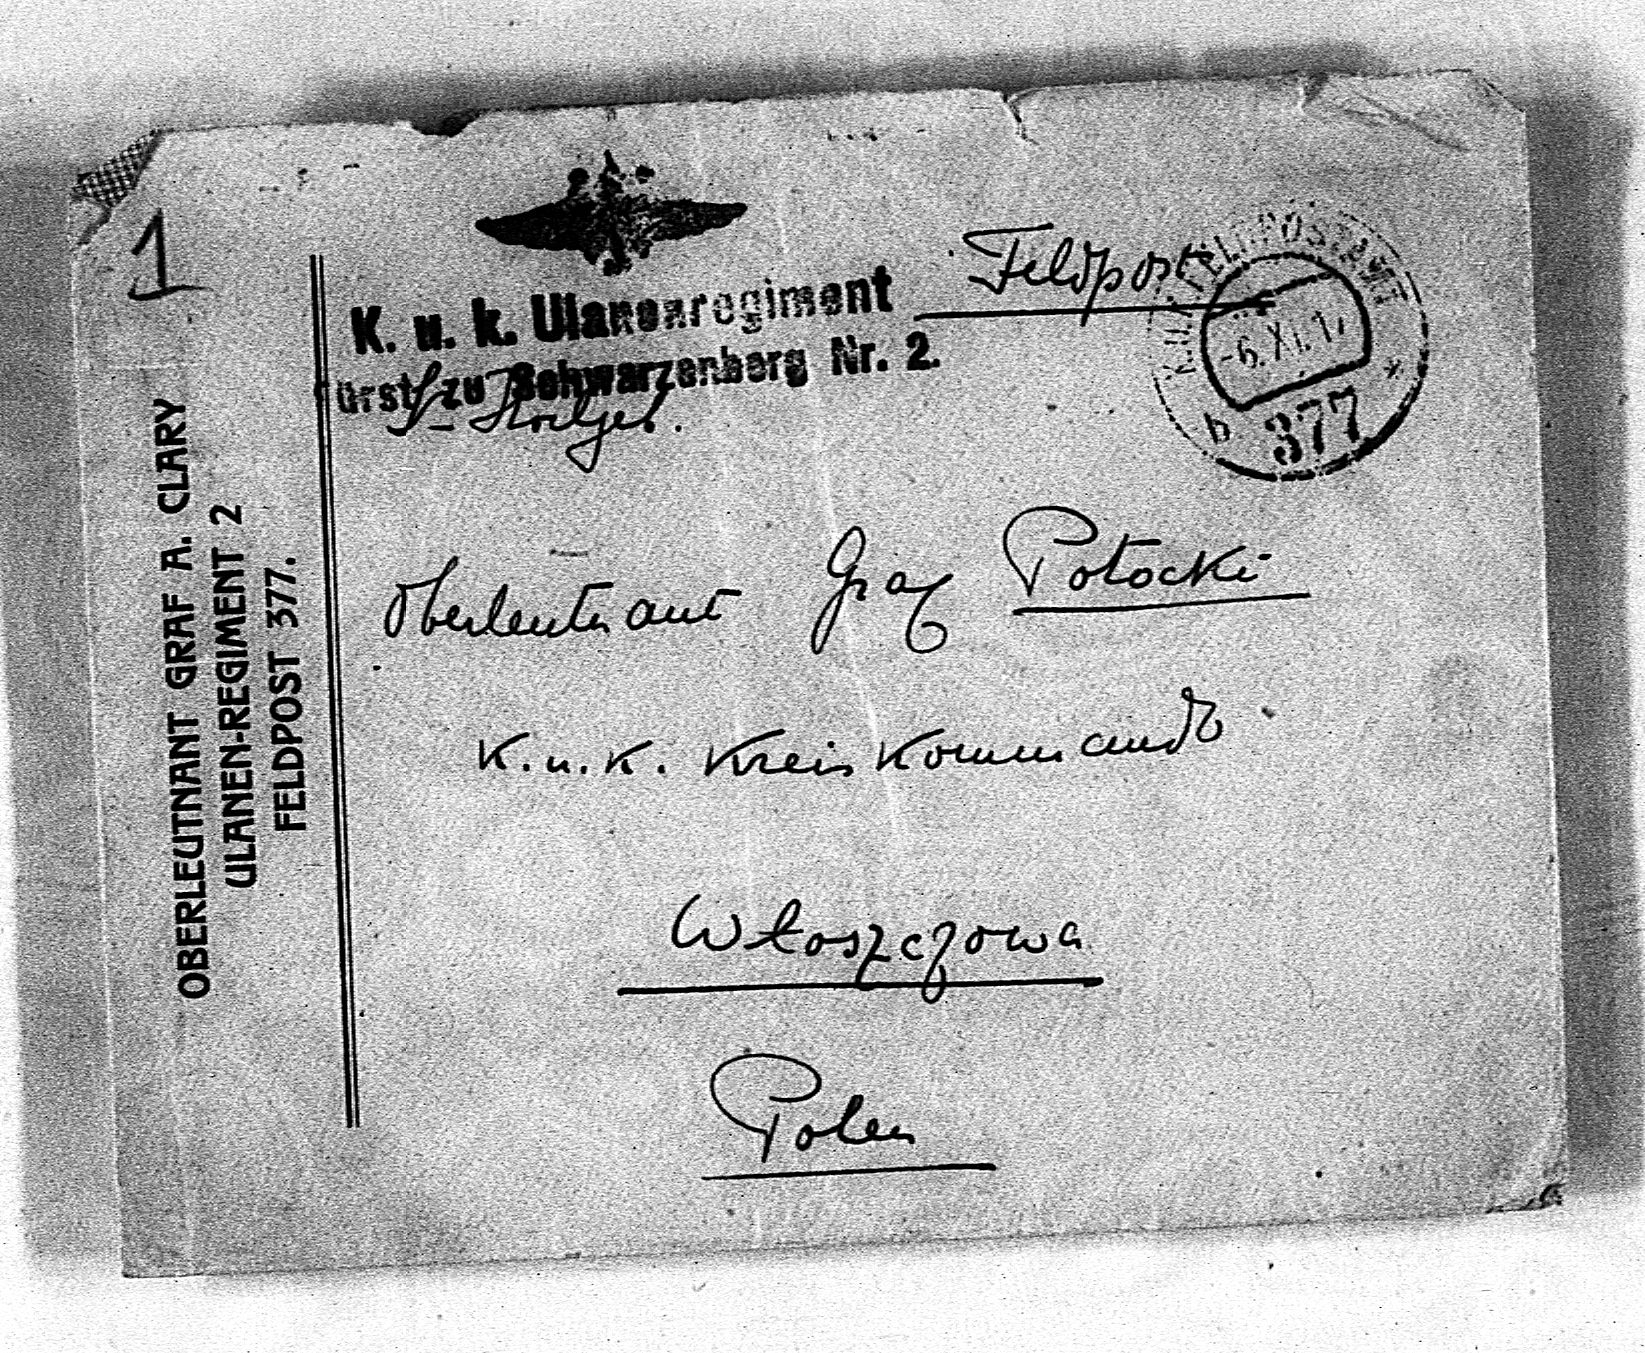 1
K. u. k. Ulanenregiment
Fürst zu Schwarzenberg Nr. 2.
Feldpost
K.U.K. FELDPOSTAMT
-6. XI. 17
b 377 *
OBERLEUTNANT GRAF A. CLARY
ULANEN-REGIMENT 2
FELDPOST 377.
Oberleutnant Graf Potocki
K.u.K. Kreiskommando
Włoszczowa
Polen